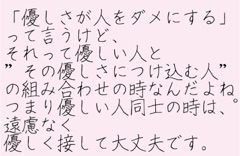 「優しさが人をダメにする」
って言うけど、
それって優しい人と
”その優しさにつけ込む人”
の組み合わせの時なんだよね。
つまり優しい人同士の時は、
遠慮なく
優しく接して大丈夫です。